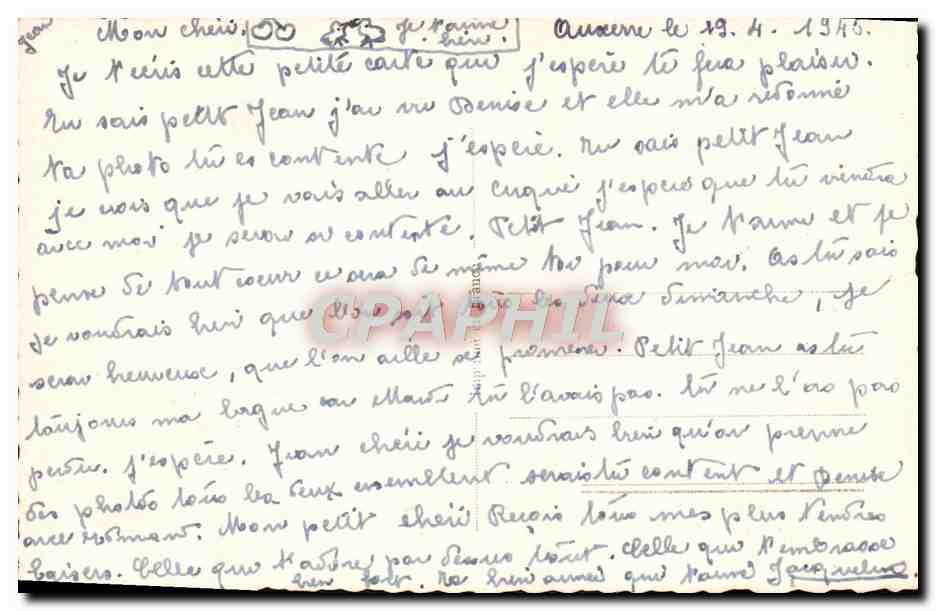 Jean
Mon chéri. Je t'aime bien. Auxerre le 19. 4. 1945.
Je t'écris cette petite carte que j'espère te fera plaisir.
Tu sais petit Jean j'ai vu Denise et elle m'a redonné
ta photo tu es contente j'espère. Tu sais petit Jean
je crois que je vais aller au cirque j'espère que tu viendra
avec moi je serai si contente. Petit Jean. Je t'aime et je
pense de tout coeur ce sera de même toi pour moi. As tu sais
je voudrais bien que l'on soit tous les deux dimanche, je
serai heureuse, que l'on aille se promener. Petit Jean as tu
toujours ma bague car Mardi tu l'avais pas. tu ne l'as pas
perdu. j'espère. Jean chéri je voudrais bien qu'on prenne
des photos tous les deux ensemblent serais tu content et Denise
avec Normand. Mon petit chéri Reçois tous mes plus tendres
baisers. Celle que t'adore par dessus tout. Celle qui t'embrasse
bien fort. Ta bien aimée qui t'aime Jacqueline
CPAPHIL